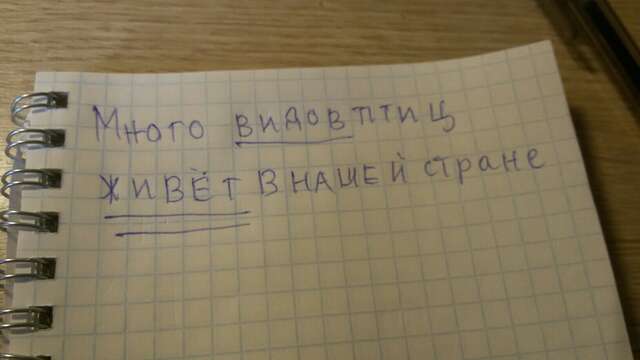 Много видов птиц
живёт в нашей стране